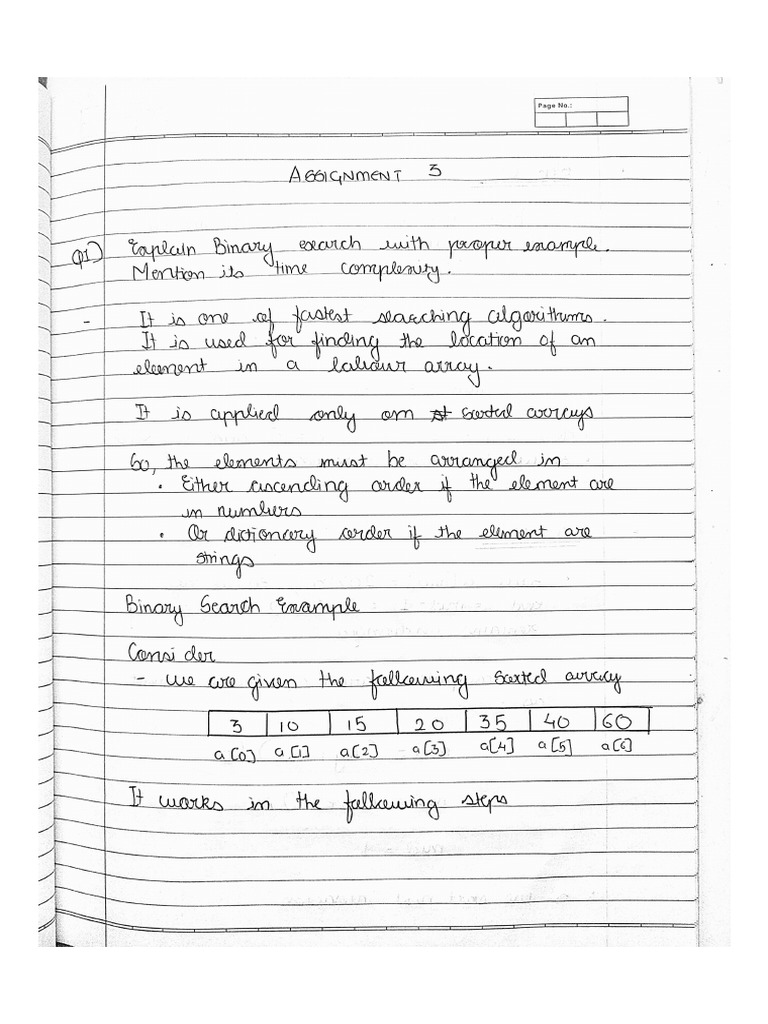 Page No.:
ASSIGNMENT 3
Q1) Explain Binary search with proper example.
Mention its time complexity.
- It is one of fastest searching algorithms.
It is used for finding the location of an
element in a array.
It is applied only on sorted arrays
So, the elements must be arranged in
• Either ascending order if the element are
in numbers
• Or dictionary order if the element are
strings
Binary Search Example
Consider
- we are given the following sorted array
3 10 15 20 35 40 60
a[0] a[1] a[2] a[3] a[4] a[5] a[6]
It works in the following steps